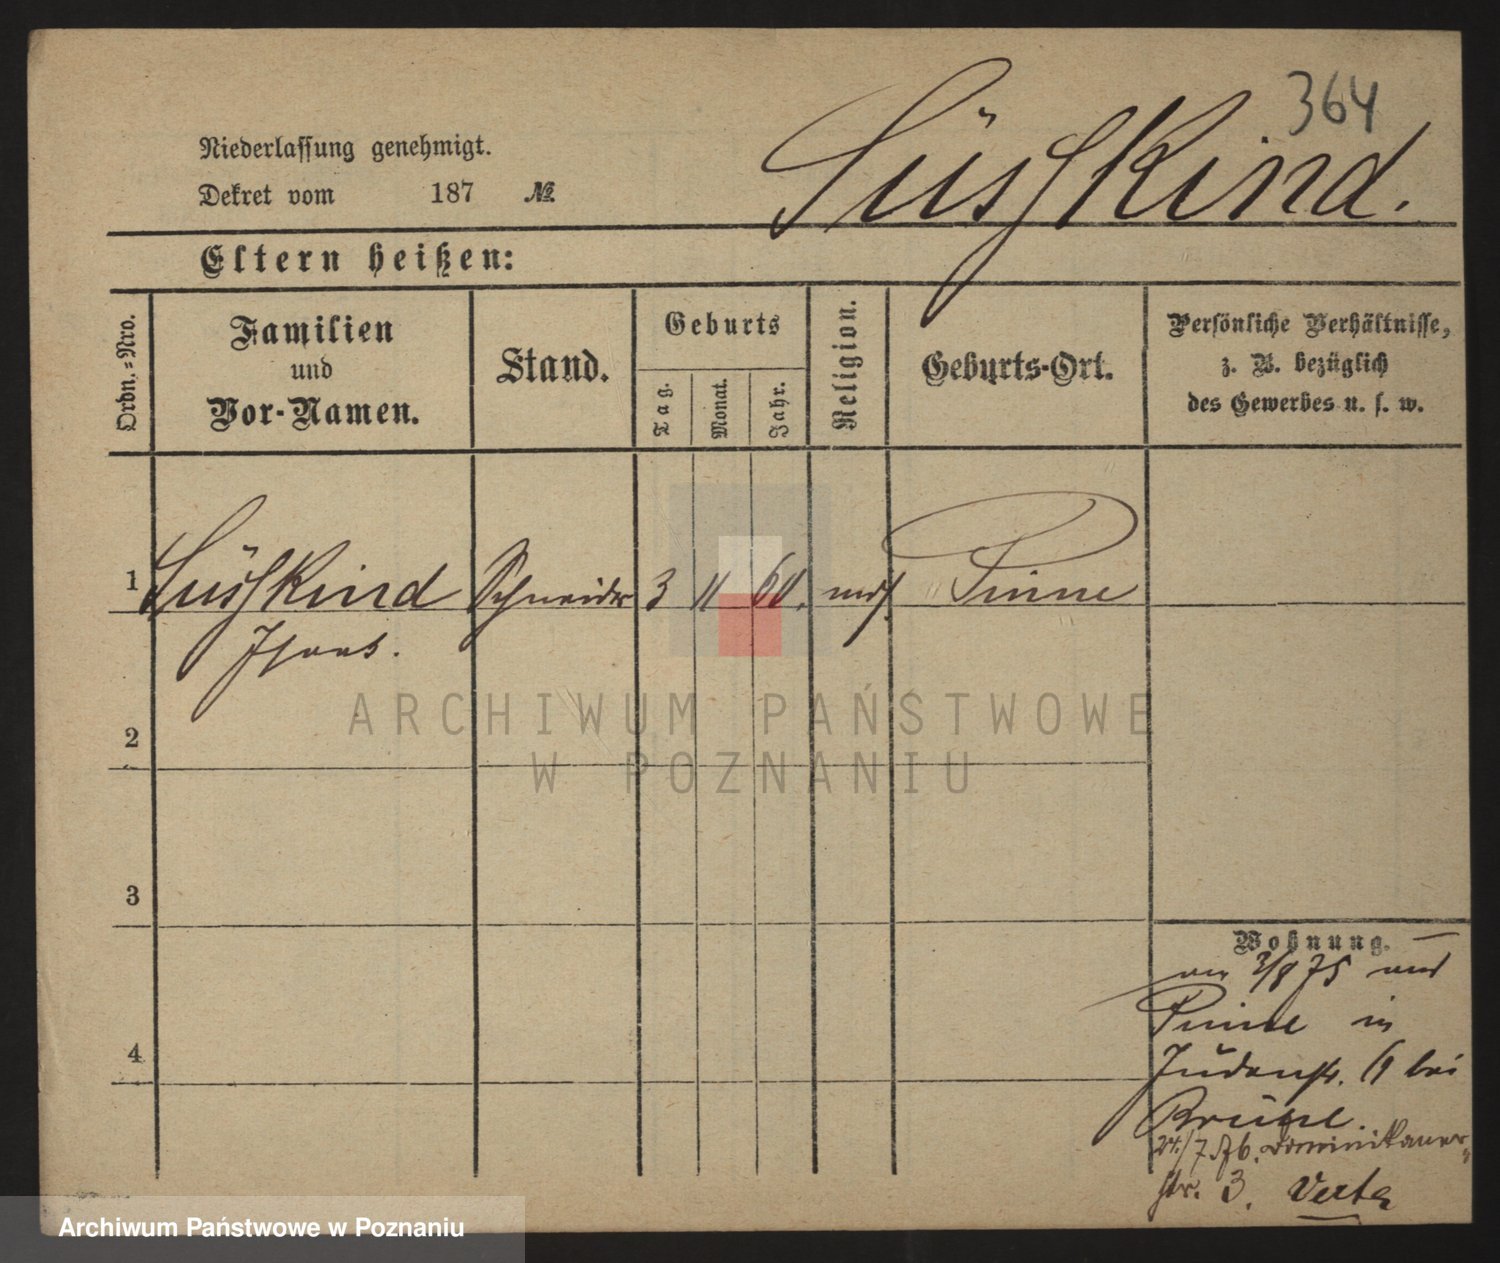 364
Süßkind.
Niederlassung genehmigt.
Dekret vom 187 №
Eltern heißen:
Ordn.-Nro.
Familien
und
Vor-Namen.
Stand.
Geburts
Tag.
Monat.
Jahr.
Religion.
Geburts-Ort.
Persönliche Verhältnisse,
z. B. bezüglich
des Gewerbes u. s. w.
1 Süßkind Schneider 3 11 60. mos. Pinne
2
3
4
Wohnung.
am 3/8 75 aus
Pinne in
Judenstr. 11 bei
24./7.76. Dominikaner
str. 3. Verte
ARCHIWUM PAŃSTWOWE
W POZNANIU
Archiwum Państwowe w Poznaniu